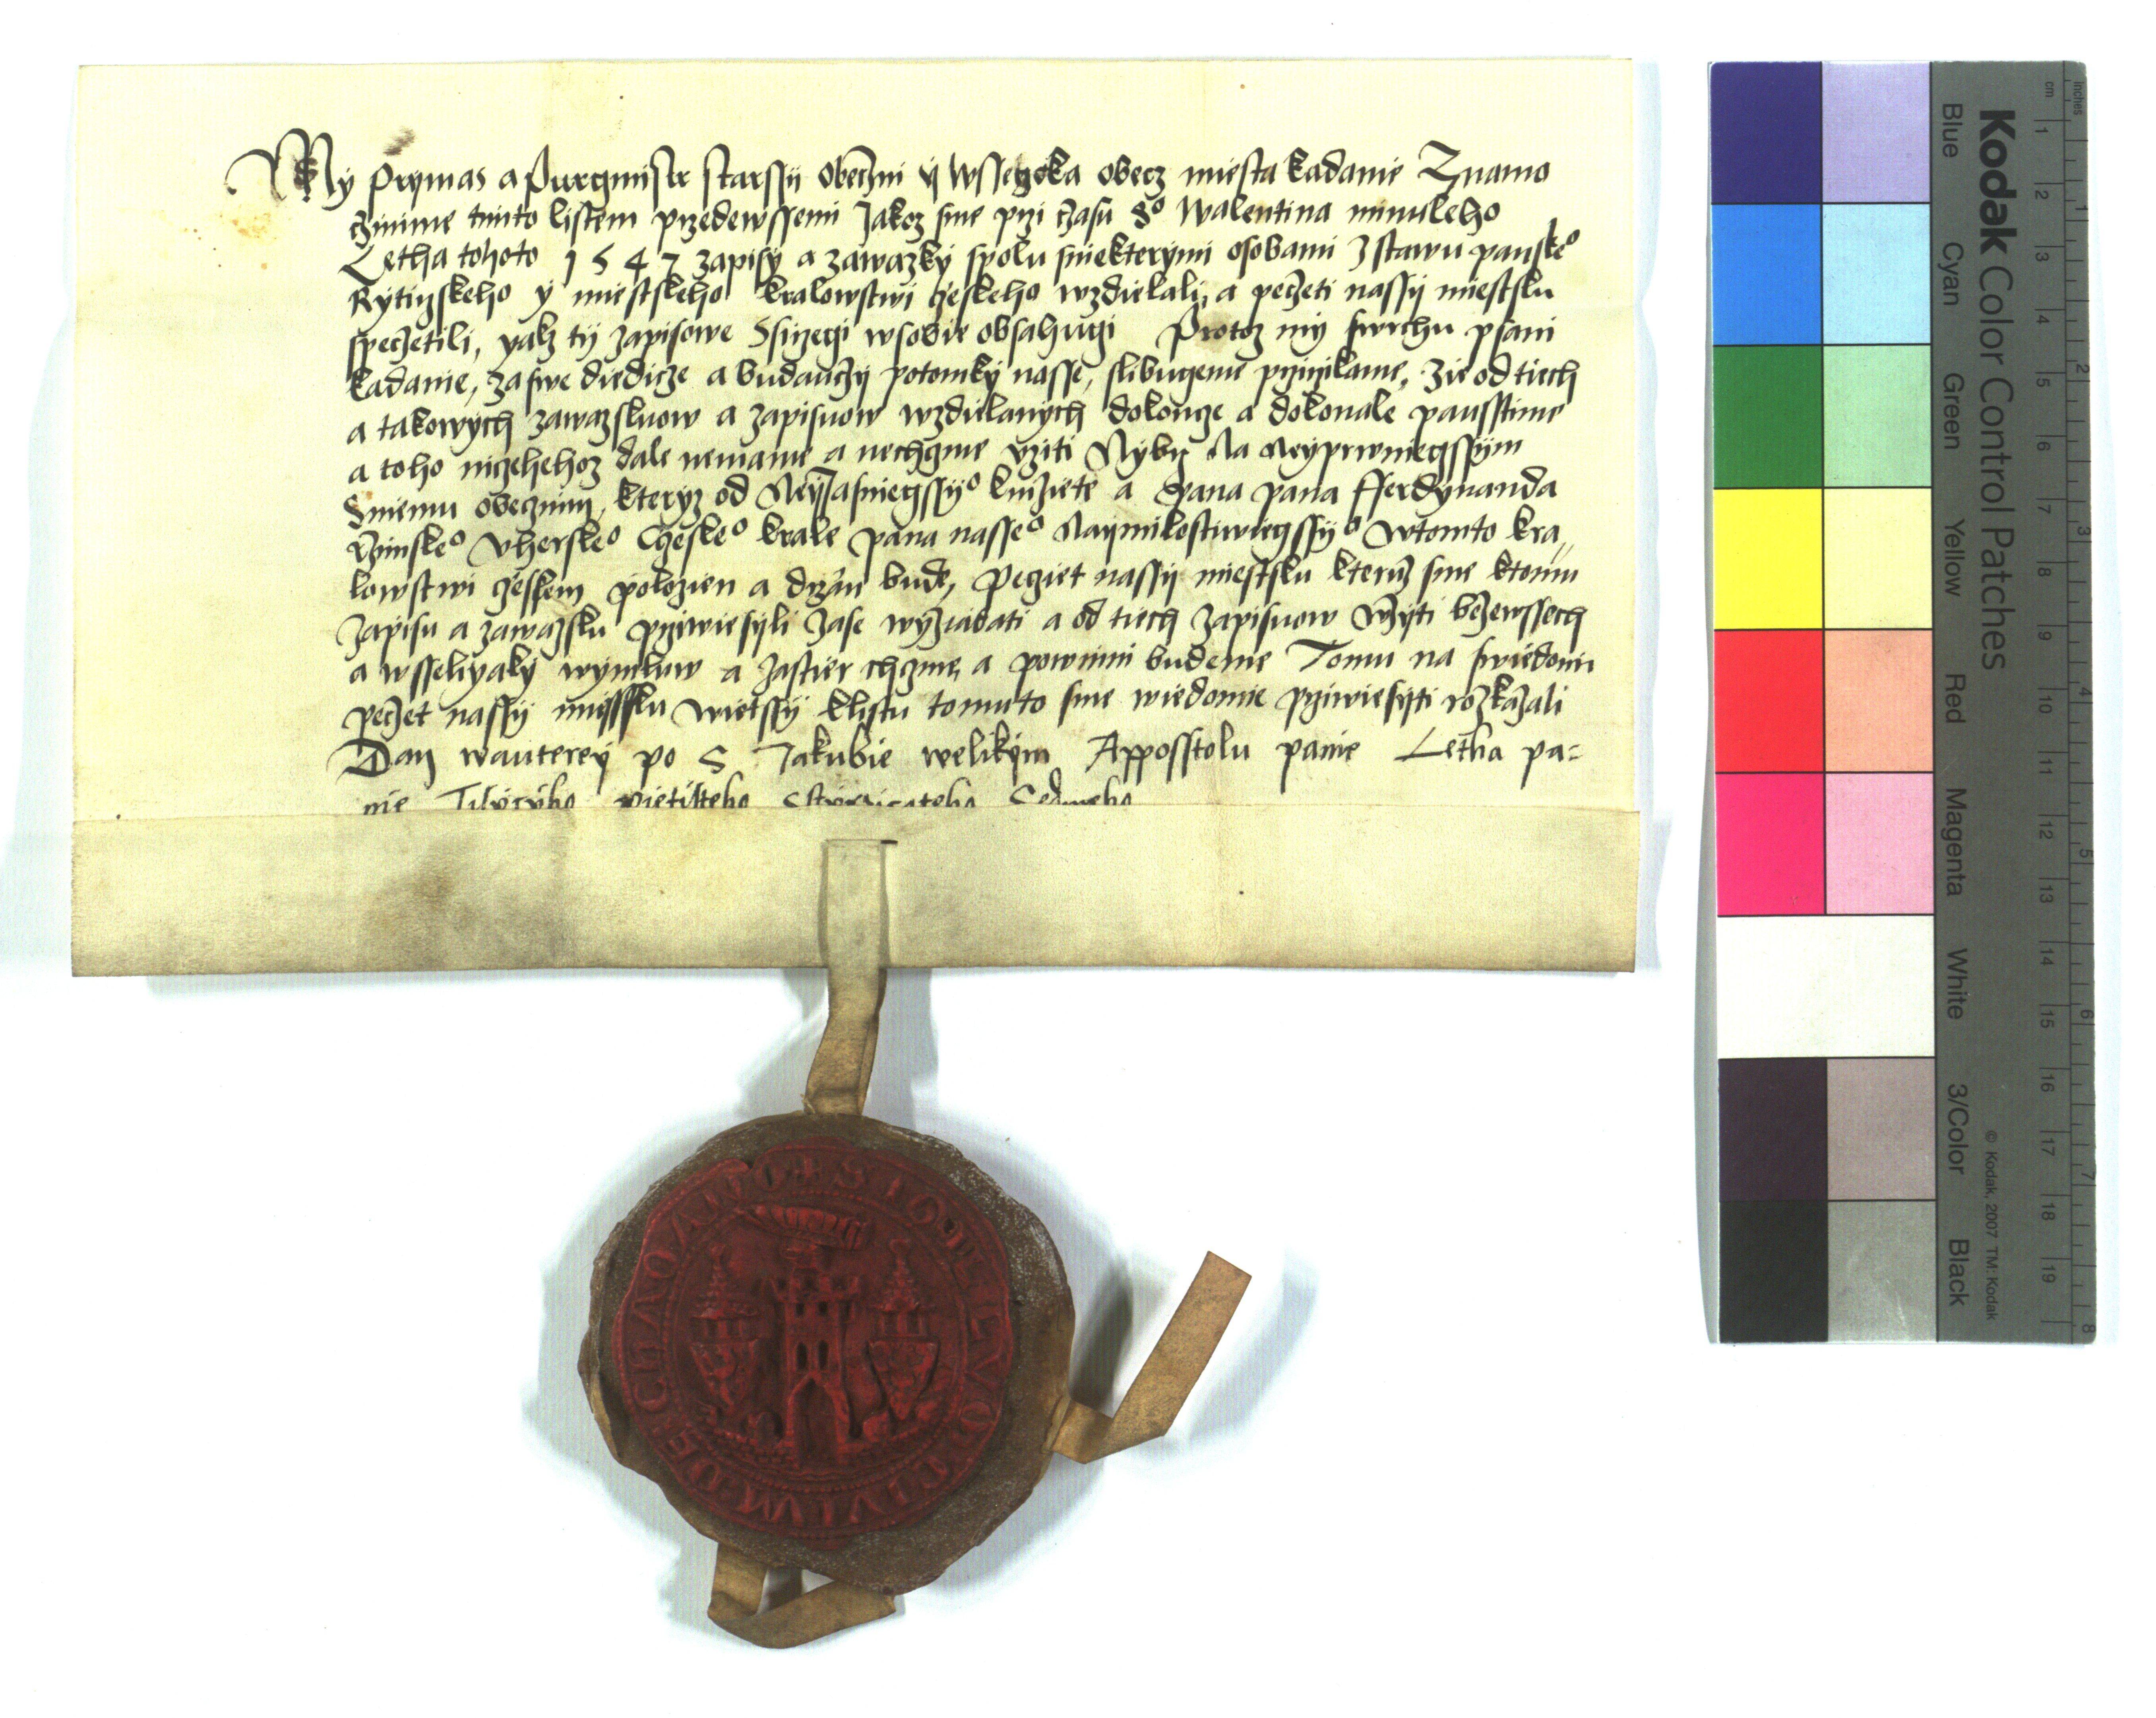 My Prymas a Purgmistr starssij obeczni ÿ wssczka obecz miesta kadanie Znamo
czinime timto listem przedewssemi Jakoz sme przi czasu S° Walentina minuleho
Letha tohoto 1547 zapisÿ a zawazkÿ spolu sniekterÿmi osobami z stawu panske°
Rÿtirzskeho ÿ miestskeho kralowstwi czeskeho wzdielali, a peczeti nassij miestsku
speczetili, yakz tij zapisowe Ssirzegi wsobie obsahugi Protoz mÿ swrchu psani
kadanie, za swe diedicze a buduczij potomkÿ nasse, slibugeme przirzikame, zie od tiech
a takowÿch zawazkuow a zapisuow wzdielanÿch dokonce a dokonale pausstime
a toho niczehehoz dale nemame a nechceme vziti Nÿbrz Na Neÿprwniegssÿm
Sniemu obecznim, kterÿz od Neÿjasniegssÿ° knizete a pana pana fferdÿnanda
rzimske° vherske° Czeske° krale pana nasse° Naymilostiwiegssÿ° wtomto kra„
lowstwi czeskem polozien a drzan bude, peczet nassij miestsku kteruz sme ktomu
zapisu a zawazku przwiesÿli zase wÿziadati a od tiech zapisuow beze wssech
a wsselÿyakÿ wÿmluw a zastier chczme, a powinni budeme Tomu na swiedomi
peczet nassij miestsku wietssÿ klistu tomuto sme wiedomie przwiesÿti rozkazali
Dan wauterey po S Jakubie welikÿm Apposstolu panie Letha pa=
nie Tisÿcÿho pietisteho Sedmeho
Kodak Color Control Patches
Blue Cyan Green Yellow Red Magenta White 3/Color Black
© Kodak, 2007 TM: Kodak
cm 1 2 3 4 5 6 7 8 9 10 11 12 13 14 15 16 17 18 19
inches 1 2 3 4 5 6 7 8